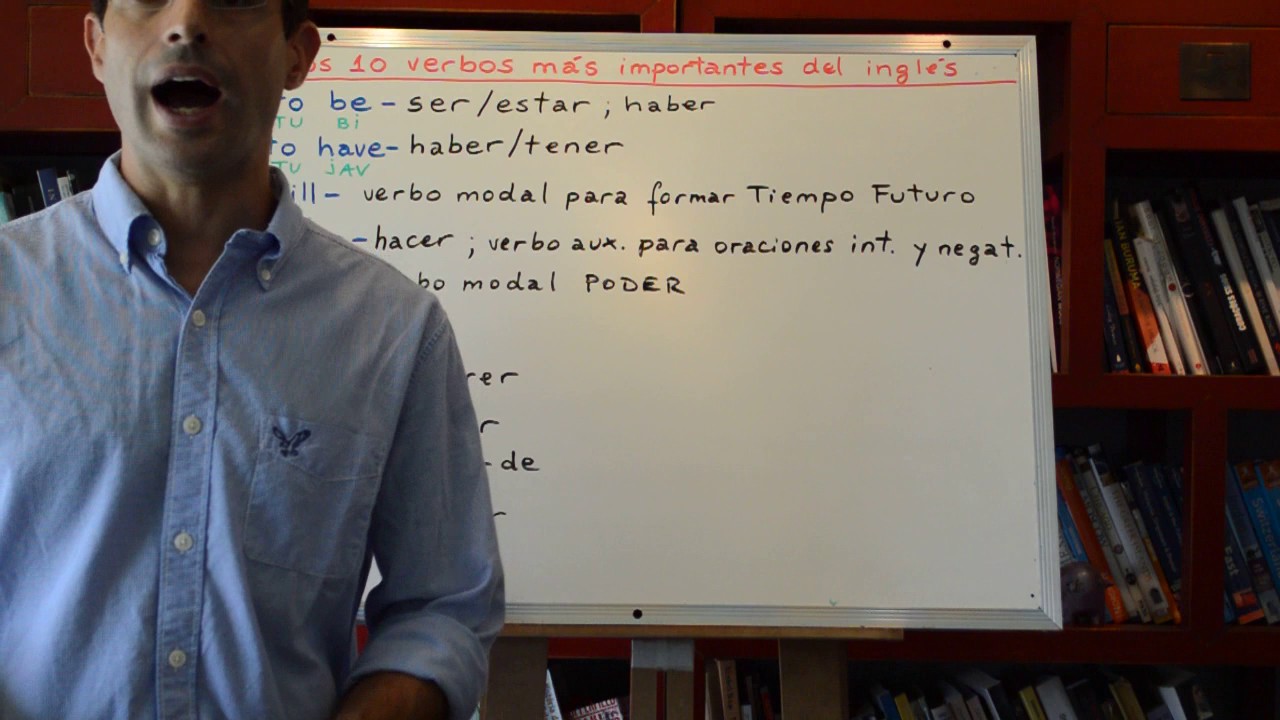 os 10 verbos más importantes del inglés
to be - ser/estar ; haber
TU Bi
to have - haber/tener
TU jAV
ill - verbo modal para formar Tiempo Futuro
- hacer ; verbo aux. para oraciones int. y negat.
bo modal PODER
rer
r
- de
r
IAN BURUMA